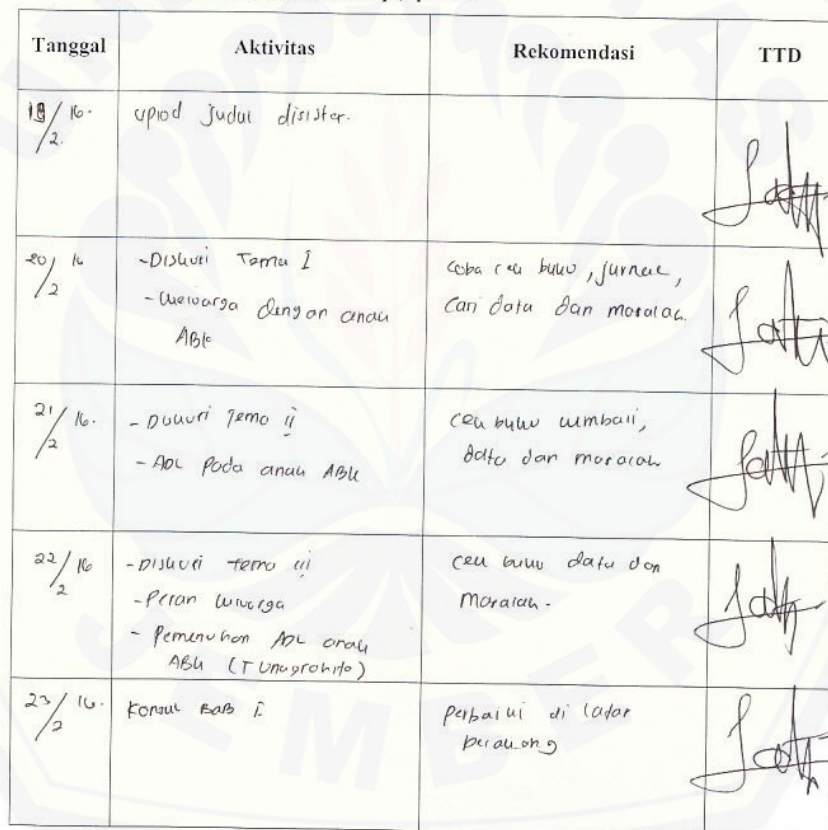 Tanggal Aktivitas Rekomendasi TTD
19/2 16. upload judul disister.
20/2 16
- Diskusi Tema I
- Keluarga dengan anak
ABK
coba cek buku, jurnal,
Cari data dan masalah.
21/2 16.
- Diskusi Tema ii
- ADL pada anak ABK
cek buku kembali,
data dan masalah
22/2 16
- Diskusi tema iii
- Peran keluarga
- Pemenuhan ADL anak
ABK (Tunagrahita)
cek buku data dan
Masalah.
23/2 16.
Konsul BAB I.
Perbaiki di latar
belakang
JEMBER